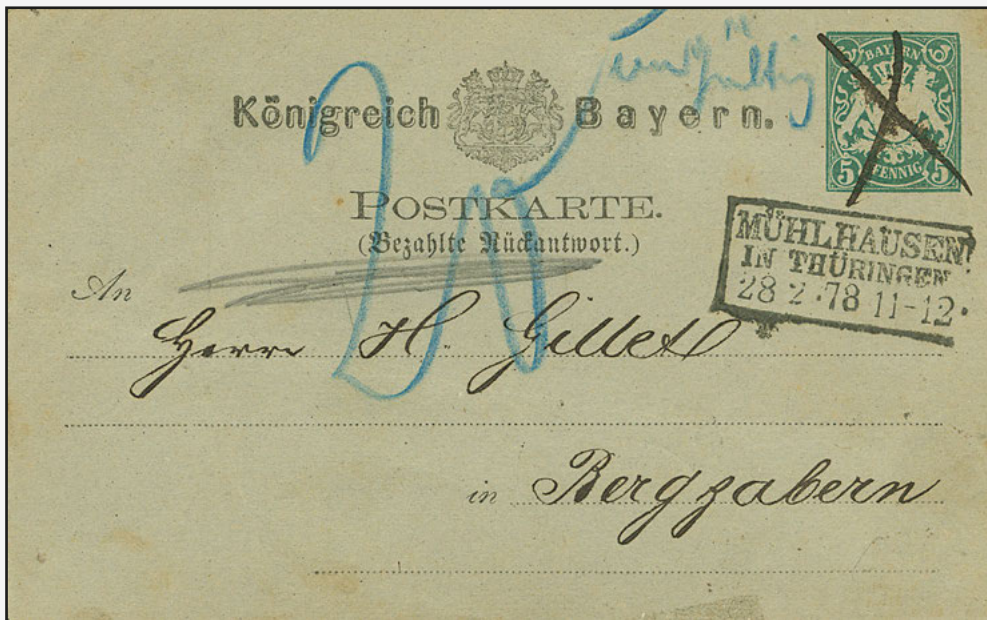 ungültig
Königreich Bayern.
BAYERN
5 PFENNIG 5
POSTKARTE.
(Bezahlte Rückantwort.)
MÜHLHAUSEN
IN THÜRINGEN
28 2 78 11-12.
An
Herrn H. Gillet
in Bergzabern